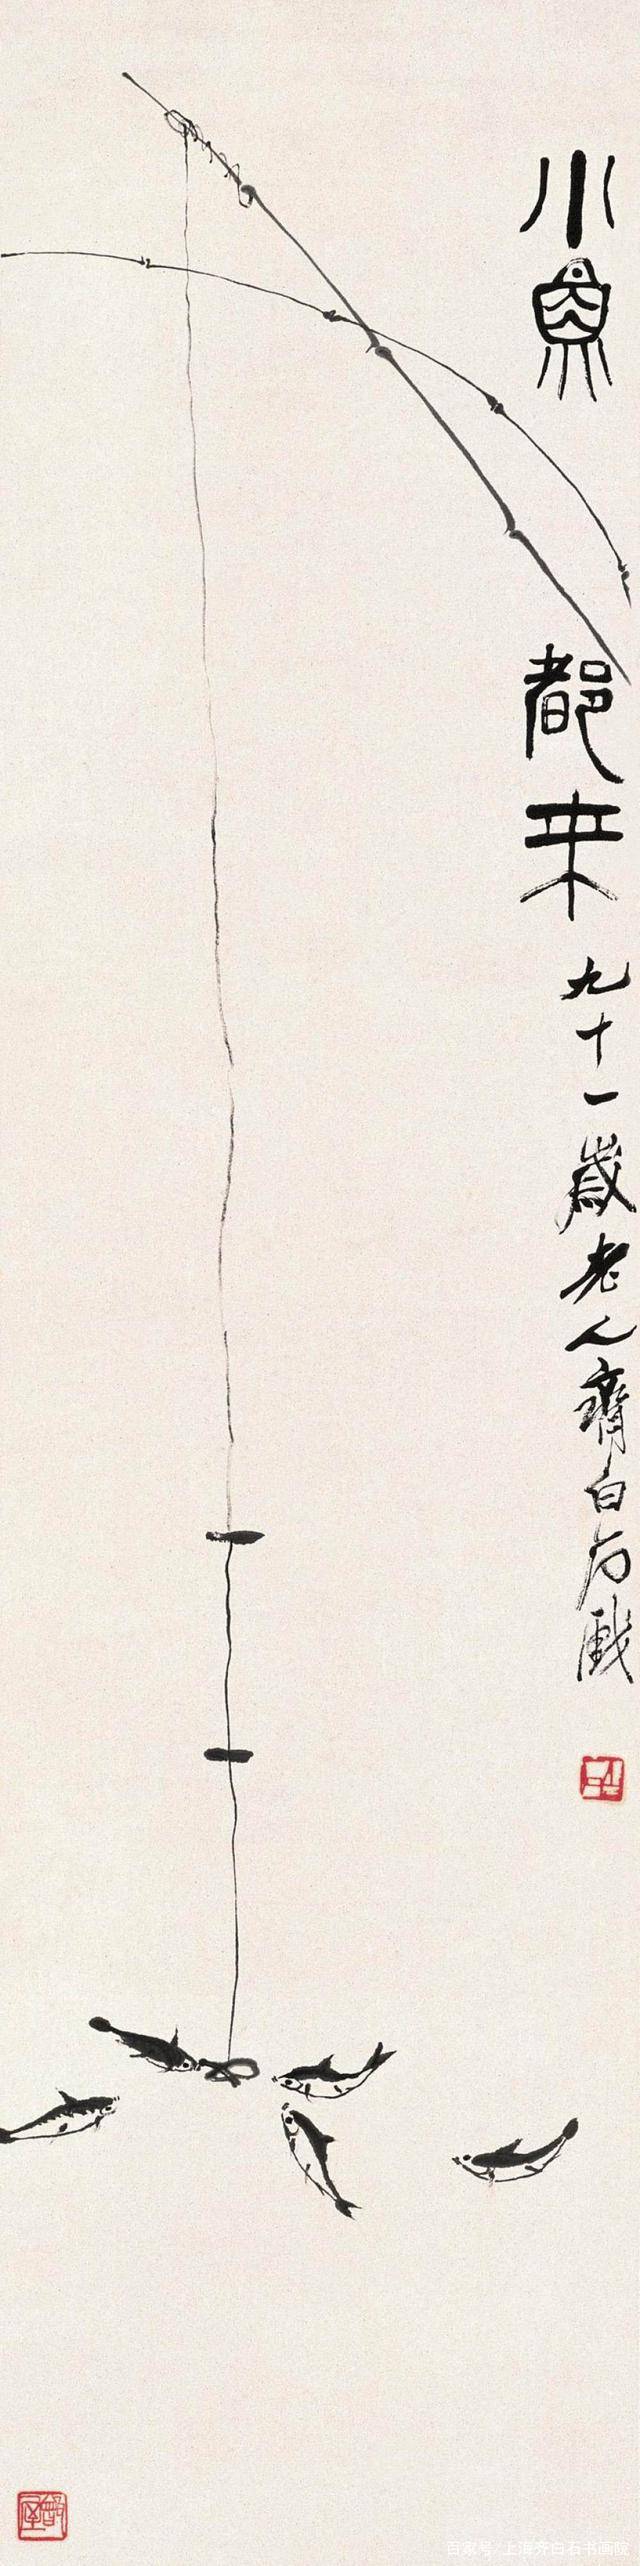 小魚都来
九十一歲老人齊白石戲
百家号/上海齐白石书画院